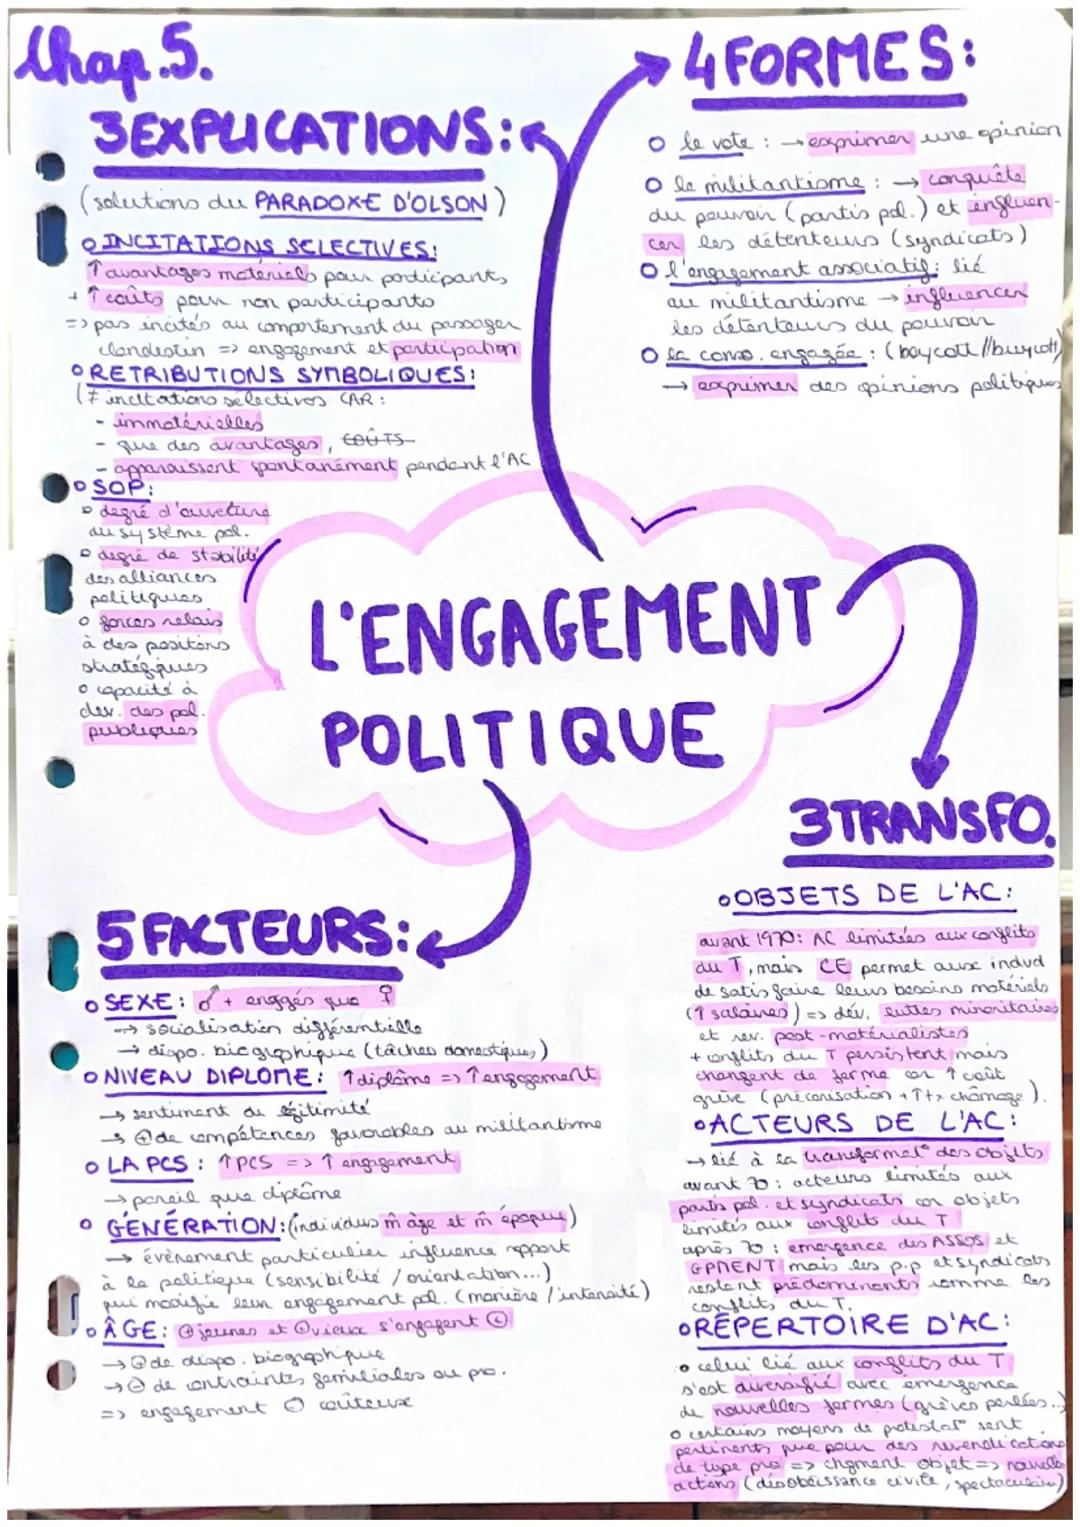 Chap.5.
3 EXPLICATIONS:
(solutions du PARADOXE D'OLSON)
o INCITATIONS SELECTIVES:
↑ avantages matériels pour participants
+ ↑ coûts pour non participants
=> pas incités au comportement du passager
clandestin => engagement et participation
o RETRIBUTIONS SYMBOLIQUES:
(≠ incitations sélectives CAR:
- immatérielles
- que des avantages, COÛTS
- apparaissent spontanément pendant l'AC
o SOP:
o degré d'ouverture
du système pol.
o degré de stabilité
des alliances
politiques
o forces relais
à des positions
stratégiques
o capacité à
dev. des pol.
publiques
4 FORMES:
o le vote : → exprimer une opinion
o le militantisme : → conquête
du pouvoir (partis pol.) et influen-
cer les détenteurs (syndicats)
o l'engagement associatif : lié
au militantisme → influencer
les détenteurs du pouvoir
o la conso. engagée : (boycott//buycott)
→ exprimer des opinions politiques
L'ENGAGEMENT
POLITIQUE
5 FACTEURS:
o SEXE: ♂ + engagés que ♀
→ socialisation différentielle
→ dispo. biographique (tâches domestiques)
o NIVEAU DIPLOME: ↑ diplôme => ↑ engagement
→ sentiment de légitimité
→ ⊕ de compétences favorables au militantisme
o LA PCS : ↑ PCS => ↑ engagement
→ pareil que diplôme
o GÉNÉRATION: (individus m̂ âge et m̂ époque)
→ évènement particulier influence rapport
à la politique (sensibilité / orientation...)
qui modifie leur engagement pol. (manière / intensité)
o ÂGE: ⊕ jeunes et ⊕ vieux s'engagent ⊕
→ ⊕ de dispo. biographique
→ ⊖ de contraintes familiales ou pro.
=> engagement ⊖ coûteux
3 TRANSFO.
o OBJETS DE L'AC:
avant 1970: AC limitées aux conflits
du T, mais CE permet aux indvd
de satisfaire leurs besoins matériels
(↑ salaires) => dév. luttes minoritaires
et rev. post-matérialistes
+ conflits du T persistent mais
changent de forme car ↑ coût
grève (précarisation + ↑ tx chômage).
o ACTEURS DE L'AC:
→ lié à la transformat° des objets
avant 70 : acteurs limités aux
partis pol. et syndicats car objets
limités aux conflits du T
après 70 : émergence des ASSOS et
GPMENT mais les p.p et syndicats
restent prédominants comme les
conflits du T.
o RÉPERTOIRE D'AC:
o celui lié aux conflits du T
s'est diversifié avec émergence
de nouvelles formes (grèves perlées..)
o certains moyens de protestat° sont
pertinents que pour des revendications
de type pro => chgment objet => nouvelles
actions (désobéissance civile, spectaculaire)